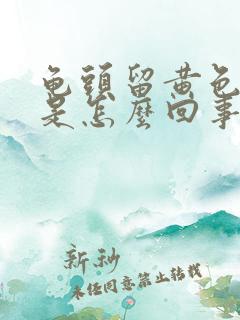 龟頭留黄色
是怎麼回事
新秒
未经同意禁止转载